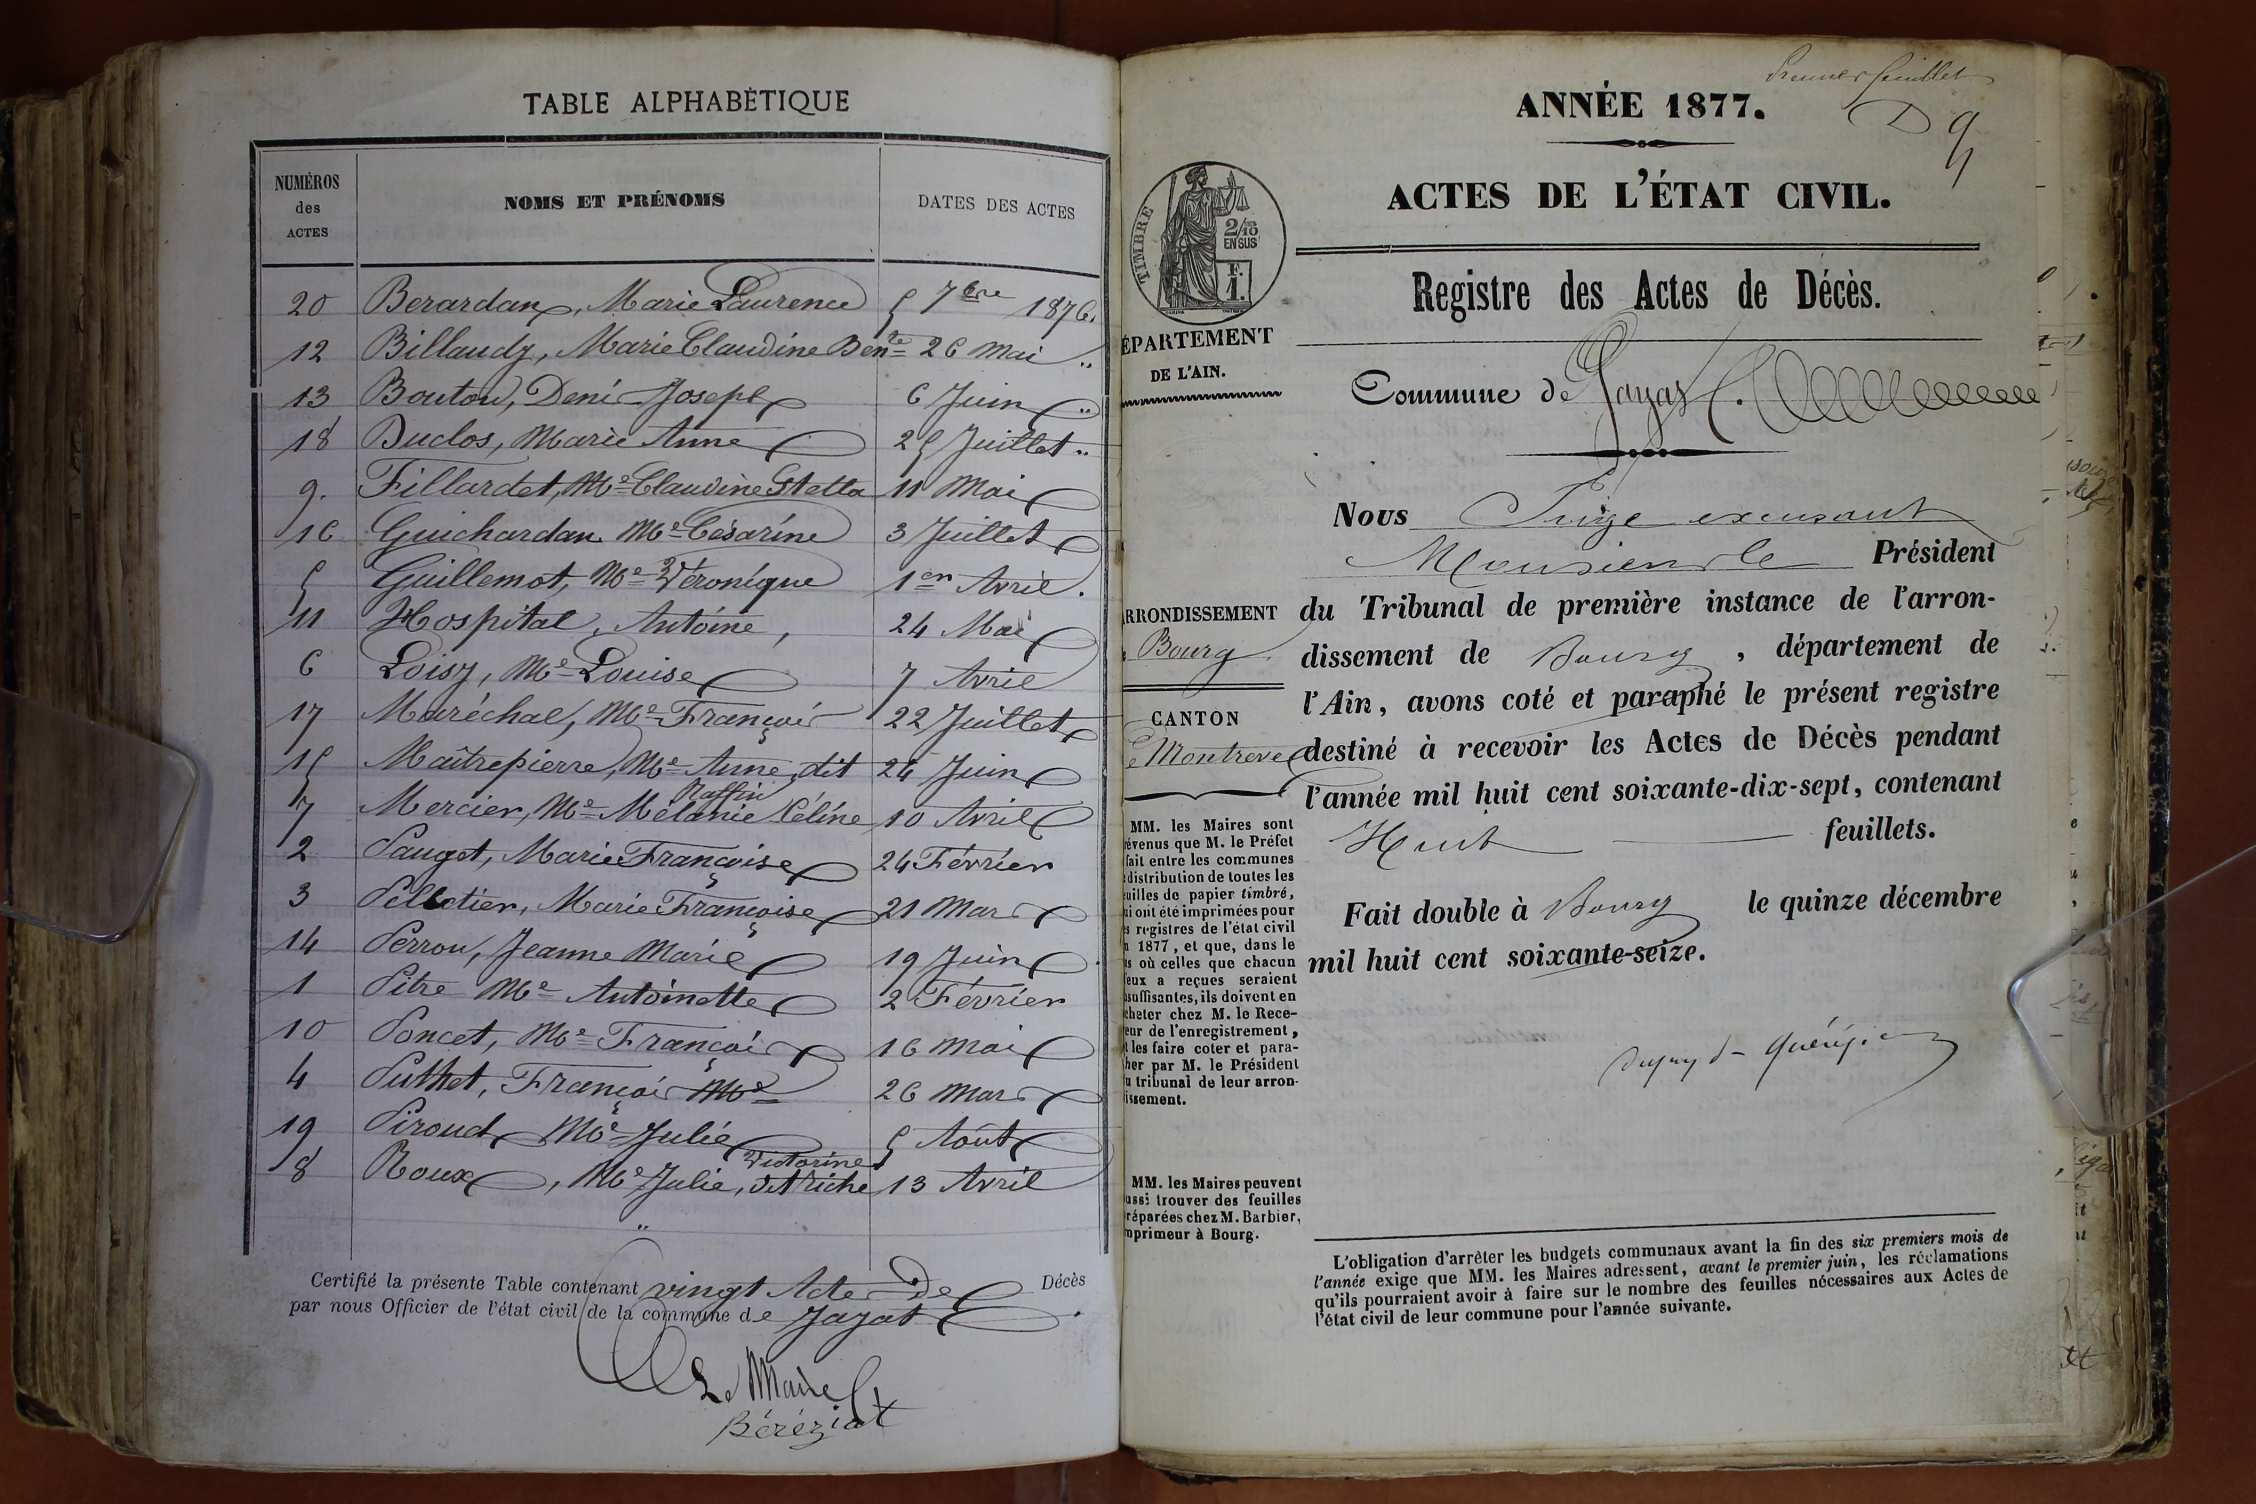 TABLE ALPHABÉTIQUE
NUMÉROS des ACTES
NOMS ET PRÉNOMS
DATES DES ACTES
20 Berardan, Marie Laurence 5 7bre 1876.
12 Billaudy, Marie Claudine Bente 26 Mai "
13 Bouton, Deni Joseph 6 Juin "
18 Duclos, Marie Anne 25 Juillet "
9. Fillardet, Me Claudine Stella 11 Mai
16 Guichardan Me Césarine 3 Juillet
5 Guillemot, Me Véronique 1er Avril.
11 Hospital, Antoine, 24 Mai
6 Loisy, Me Louise 7 Avril
17 Maréchal, Me François 22 Juillet
15 Maîtrepierre, Me Anne, dit Raffin 24 Juin
7 Mercier, Me Mélanie Céline 10 Avril
2 Pauget, Marie Françoise 24 Février
3 Pelletier, Marie Françoise 21 Mars
14 Perron, Jeanne Marie 19 Juin
1 Pitre Me Antoinette 2 Février
10 Poncet, Me François 16 Mai
4 Puthet, François Me 26 Mars
19 Piroud, Me Julie 5 Août
8 Roux, Me Julie, Victorine dit Riche 13 Avril
"
Certifié la présente Table contenant vingt Actes De Décès
par nous Officier de l'état civil de la commune de Jayat.
Le Maire
Béréziat
Premier feuillet
D 9
ANNÉE 1877.
ACTES DE L'ÉTAT CIVIL.
TIMBRE
2/10
EN SUS
F.
1.
Registre des Actes de Décès.
ÉPARTEMENT
DE L'AIN.
Commune de Jayat.
Nous Juge excusant
Monsieur le Président
du Tribunal de première instance de l'arron-
dissement de Bourg, département de
l'Ain, avons coté et paraphé le présent registre
destiné à recevoir les Actes de Décès pendant
l'année mil huit cent soixante-dix-sept, contenant
Huit feuillets.
Fait double à Bourg le quinze décembre
mil huit cent soixante-seize.
RRONDISSEMENT
Bourg
CANTON
Montrevel
MM. les Maires sont
révenus que M. le Préfet
fait entre les communes
distribution de toutes les
uilles de papier timbré,
ui ont été imprimées pour
s registres de l'état civil
n 1877, et que, dans le
s où celles que chacun
eux a reçues seraient
suffisantes, ils doivent en
cheter chez M. le Rece-
eur de l'enregistrement,
t les faire coter et para-
her par M. le Président
u tribunal de leur arron-
issement.
MM. les Maires peuvent
ussi trouver des feuilles
réparées chez M. Barbier,
mprimeur à Bourg.
L'obligation d'arrêter les budgets communaux avant la fin des six premiers mois de
l'année exige que MM. les Maires adressent, avant le premier juin, les réclamations
qu'ils pourraient avoir à faire sur le nombre des feuilles nécessaires aux Actes de
l'état civil de leur commune pour l'année suivante.